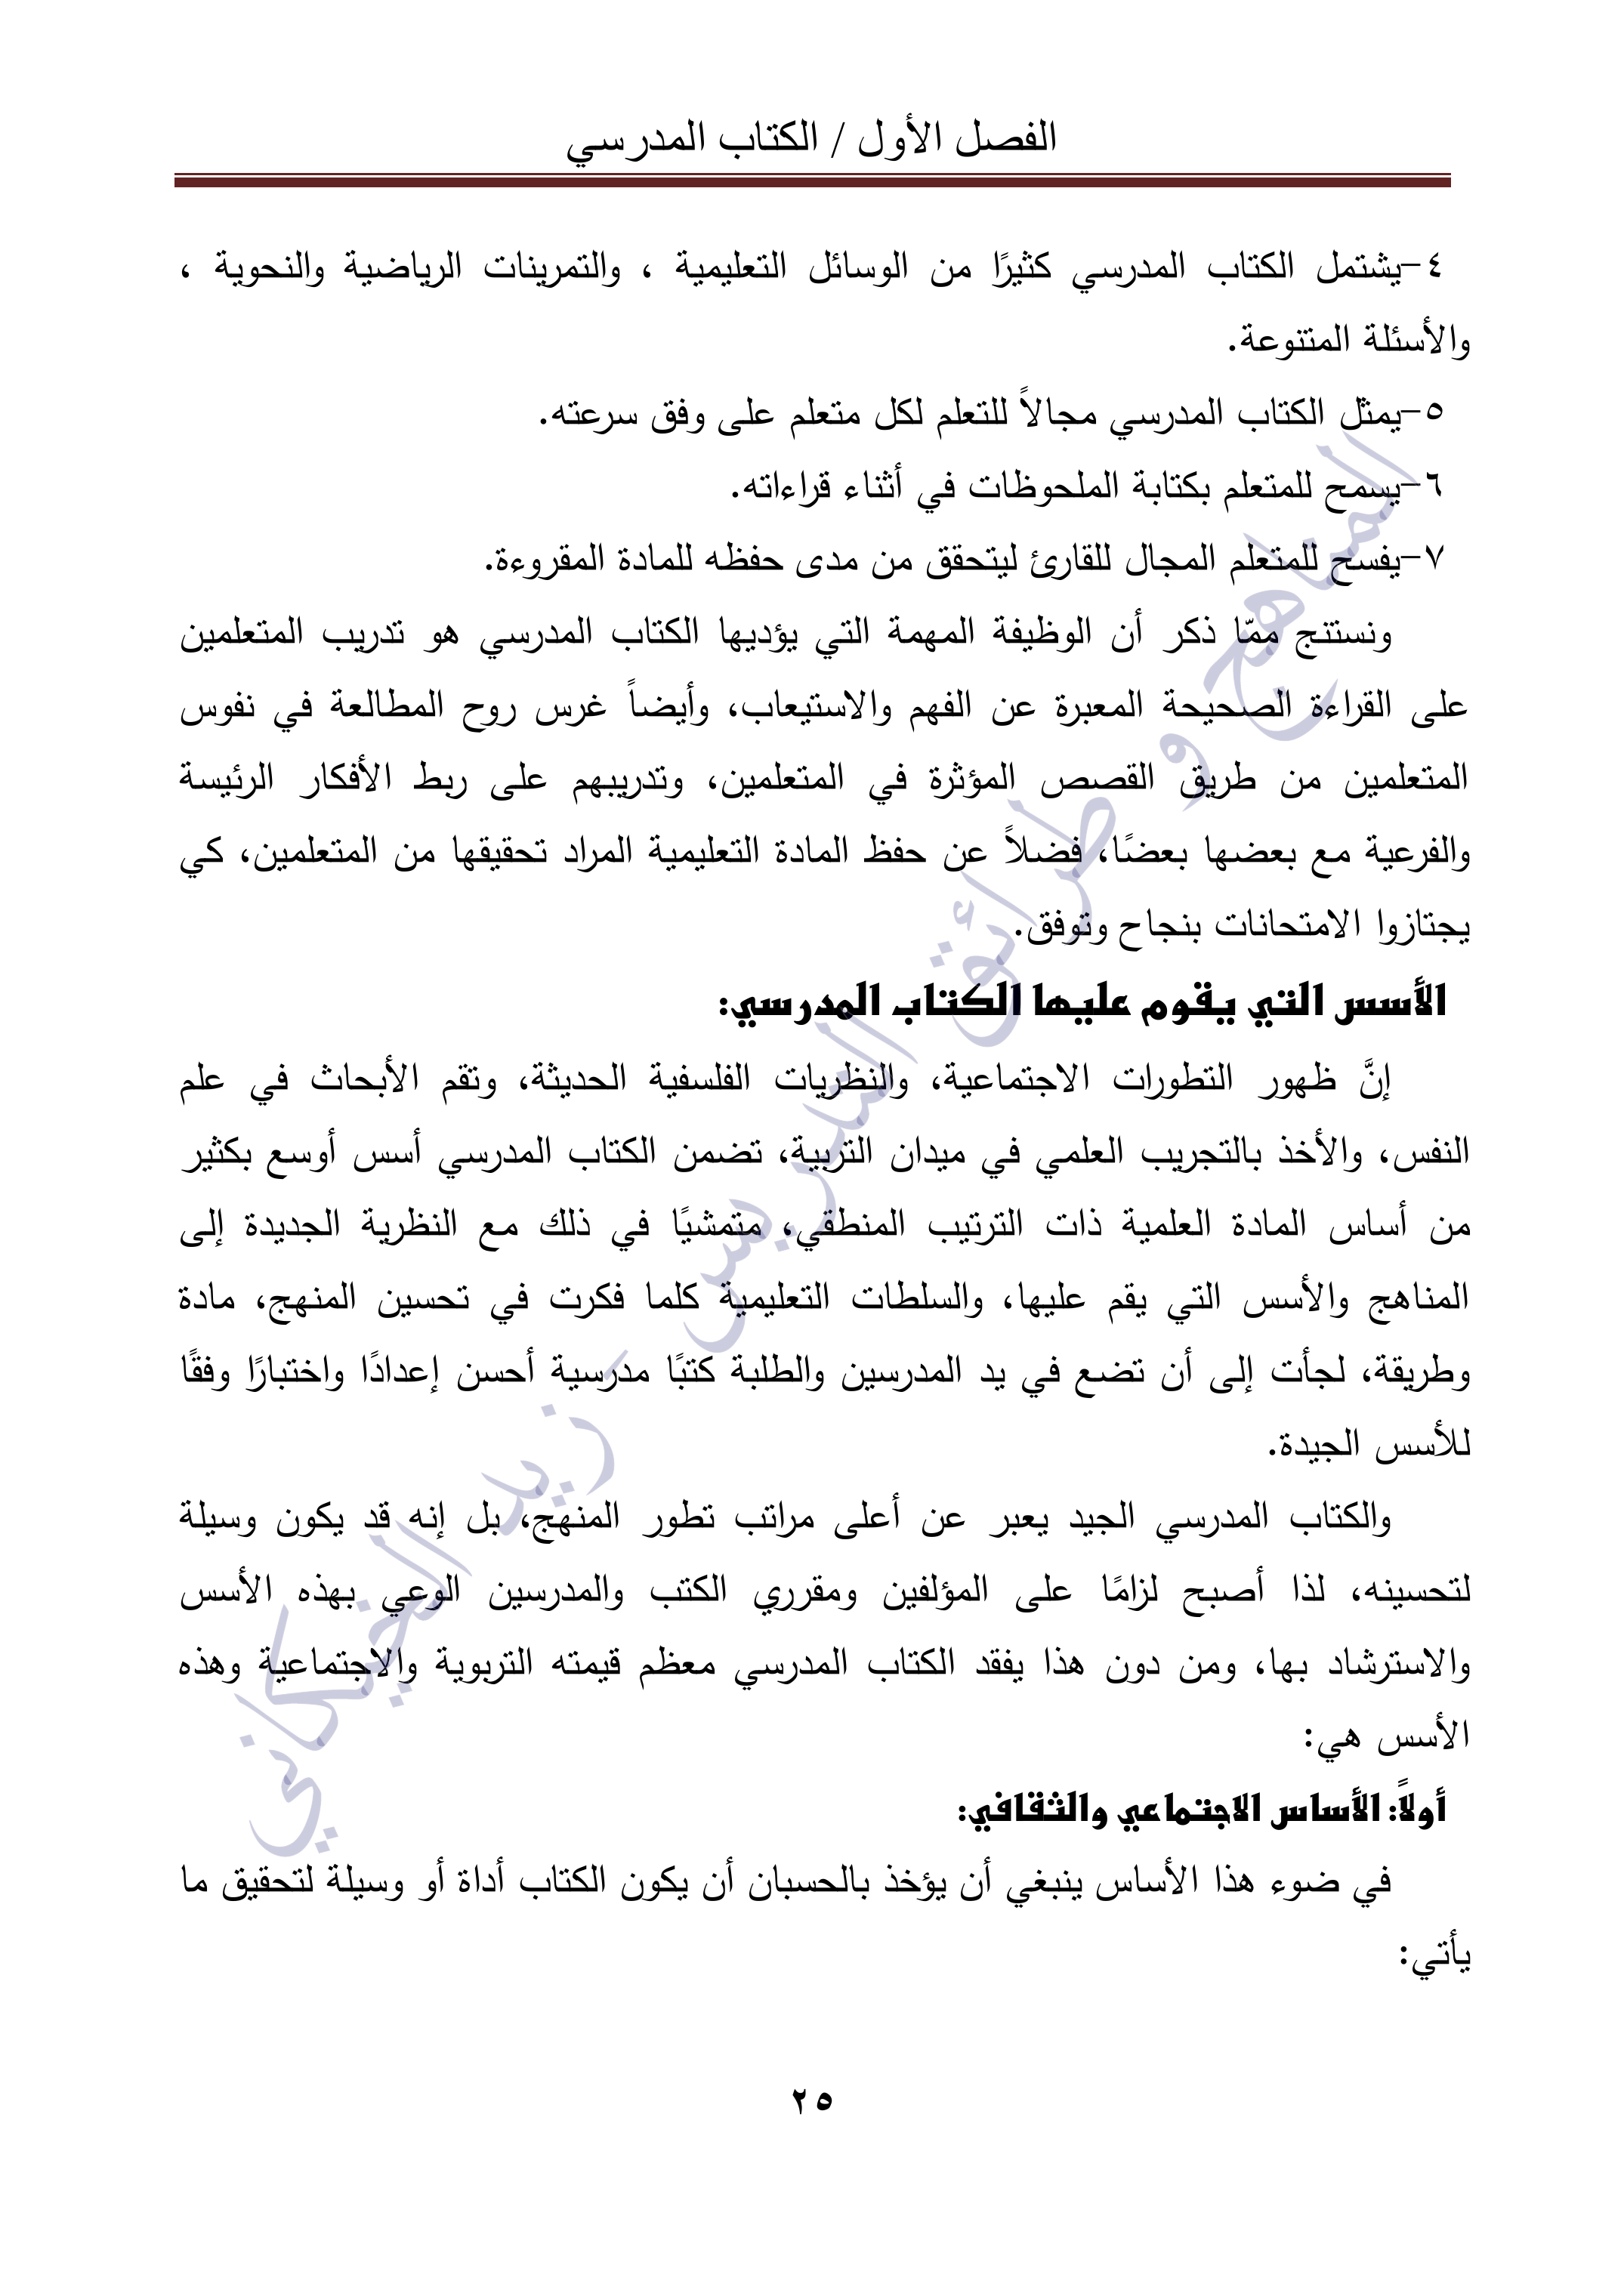 الفصل الأول / الكتاب المدرسي
٤-يشتمل الكتاب المدرسي كثيرًا من الوسائل التعليمية ، والتمرينات الرياضية والنحوية ،
والأسئلة المتنوعة.
٥-يمثل الكتاب المدرسي مجالاً للتعلم لكل متعلم على وفق سرعته.
٦-يسمح للمتعلم بكتابة الملحوظات في أثناء قراءاته.
٧-يفسح للمتعلم المجال للقارئ ليتحقق من مدى حفظه للمادة المقروءة.
ونستنتج ممّا ذكر أن الوظيفة المهمة التي يؤديها الكتاب المدرسي هو تدريب المتعلمين
على القراءة الصحيحة المعبرة عن الفهم والاستيعاب، وأيضاً غرس روح المطالعة في نفوس
المتعلمين من طريق القصص المؤثرة في المتعلمين، وتدريبهم على ربط الأفكار الرئيسة
والفرعية مع بعضها بعضًا، فضلاً عن حفظ المادة التعليمية المراد تحقيقها من المتعلمين، كي
يجتازوا الامتحانات بنجاح وتوفق.
الأسس التي يقوم عليها الكتاب المدرسي:
إنَّ ظهور التطورات الاجتماعية، والنظريات الفلسفية الحديثة، وتقم الأبحاث في علم
النفس، والأخذ بالتجريب العلمي في ميدان التربية، تضمن الكتاب المدرسي أسس أوسع بكثير
من أساس المادة العلمية ذات الترتيب المنطقي، متمشيًا في ذلك مع النظرية الجديدة إلى
المناهج والأسس التي يقم عليها، والسلطات التعليمية كلما فكرت في تحسين المنهج، مادة
وطريقة، لجأت إلى أن تضع في يد المدرسين والطلبة كتبًا مدرسية أحسن إعدادًا واختبارًا وفقًا
للأسس الجيدة.
والكتاب المدرسي الجيد يعبر عن أعلى مراتب تطور المنهج، بل إنه قد يكون وسيلة
لتحسينه، لذا أصبح لزامًا على المؤلفين ومقرري الكتب والمدرسين الوعي بهذه الأسس
والاسترشاد بها، ومن دون هذا يفقد الكتاب المدرسي معظم قيمته التربوية والاجتماعية وهذه
الأسس هي:
أولاً: الأساس الاجتماعي والثقافي:
في ضوء هذا الأساس ينبغي أن يؤخذ بالحسبان أن يكون الكتاب أداة أو وسيلة لتحقيق ما
يأتي:
٢٥
المناهج و طرائق التدريس - زيد الخيكاني